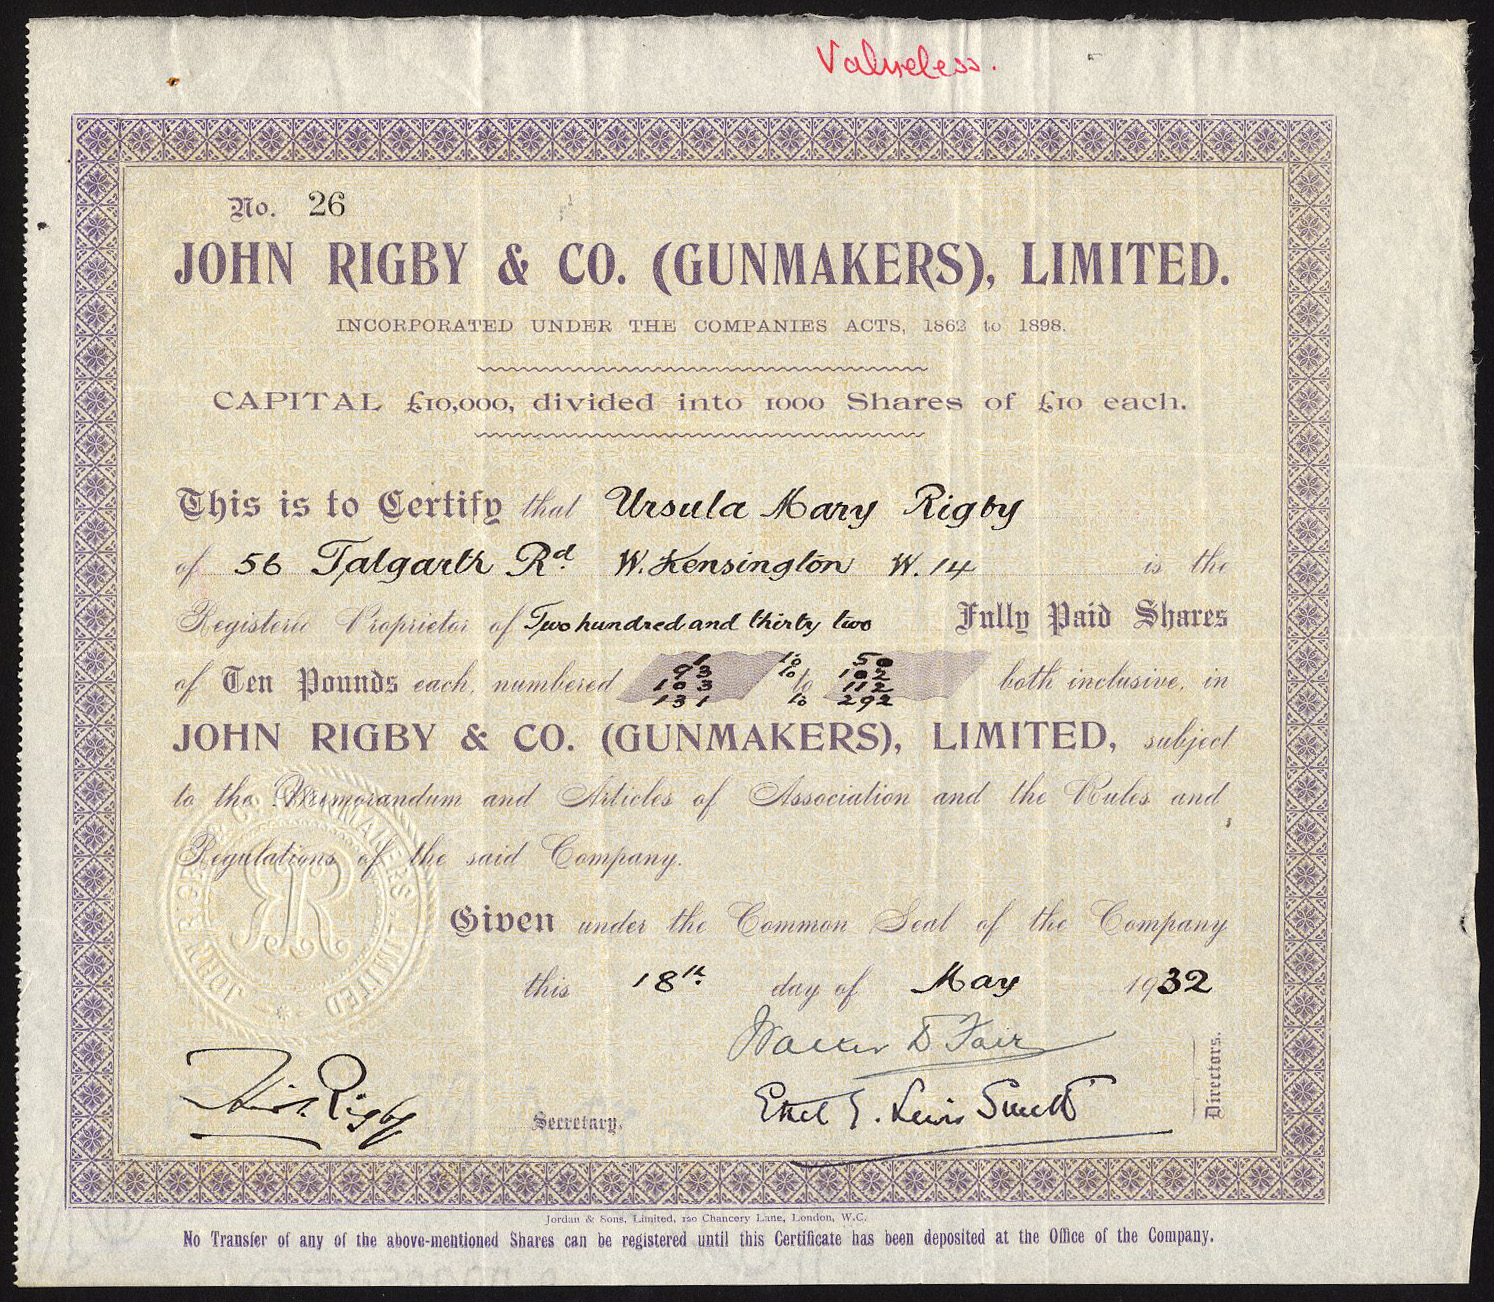 Valueless.
No. 26
JOHN RIGBY & CO. (GUNMAKERS), LIMITED.
INCORPORATED UNDER THE COMPANIES ACTS, 1862 to 1898.
CAPITAL £10,000, divided into 1000 Shares of £10 each.
This is to Certify that Ursula Mary Rigby
of 56 Talgarth Rd. W. Kensington W. 14 is the
Registered Proprietor of Two hundred and thirty two Fully Paid Shares
1 to 50
93 to 102
of Ten Pounds each, numbered 103 to 112 both inclusive, in
131 to 292
JOHN RIGBY & CO. (GUNMAKERS), LIMITED, subject
to the Memorandum and Articles of Association and the Rules and
Regulations of the said Company.
JOHN RIGBY & CO. GUNMAKERS LIMITED
JR
Given under the Common Seal of the Company
this 18th. day of May 1932
Walter D Fair
Rigby Secretary. Ethel E. Lewis Directors.
Jordan & Sons, Limited, 120 Chancery Lane, London, W.C.
No Transfer of any of the above-mentioned Shares can be registered until this Certificate has been deposited at the Office of the Company.